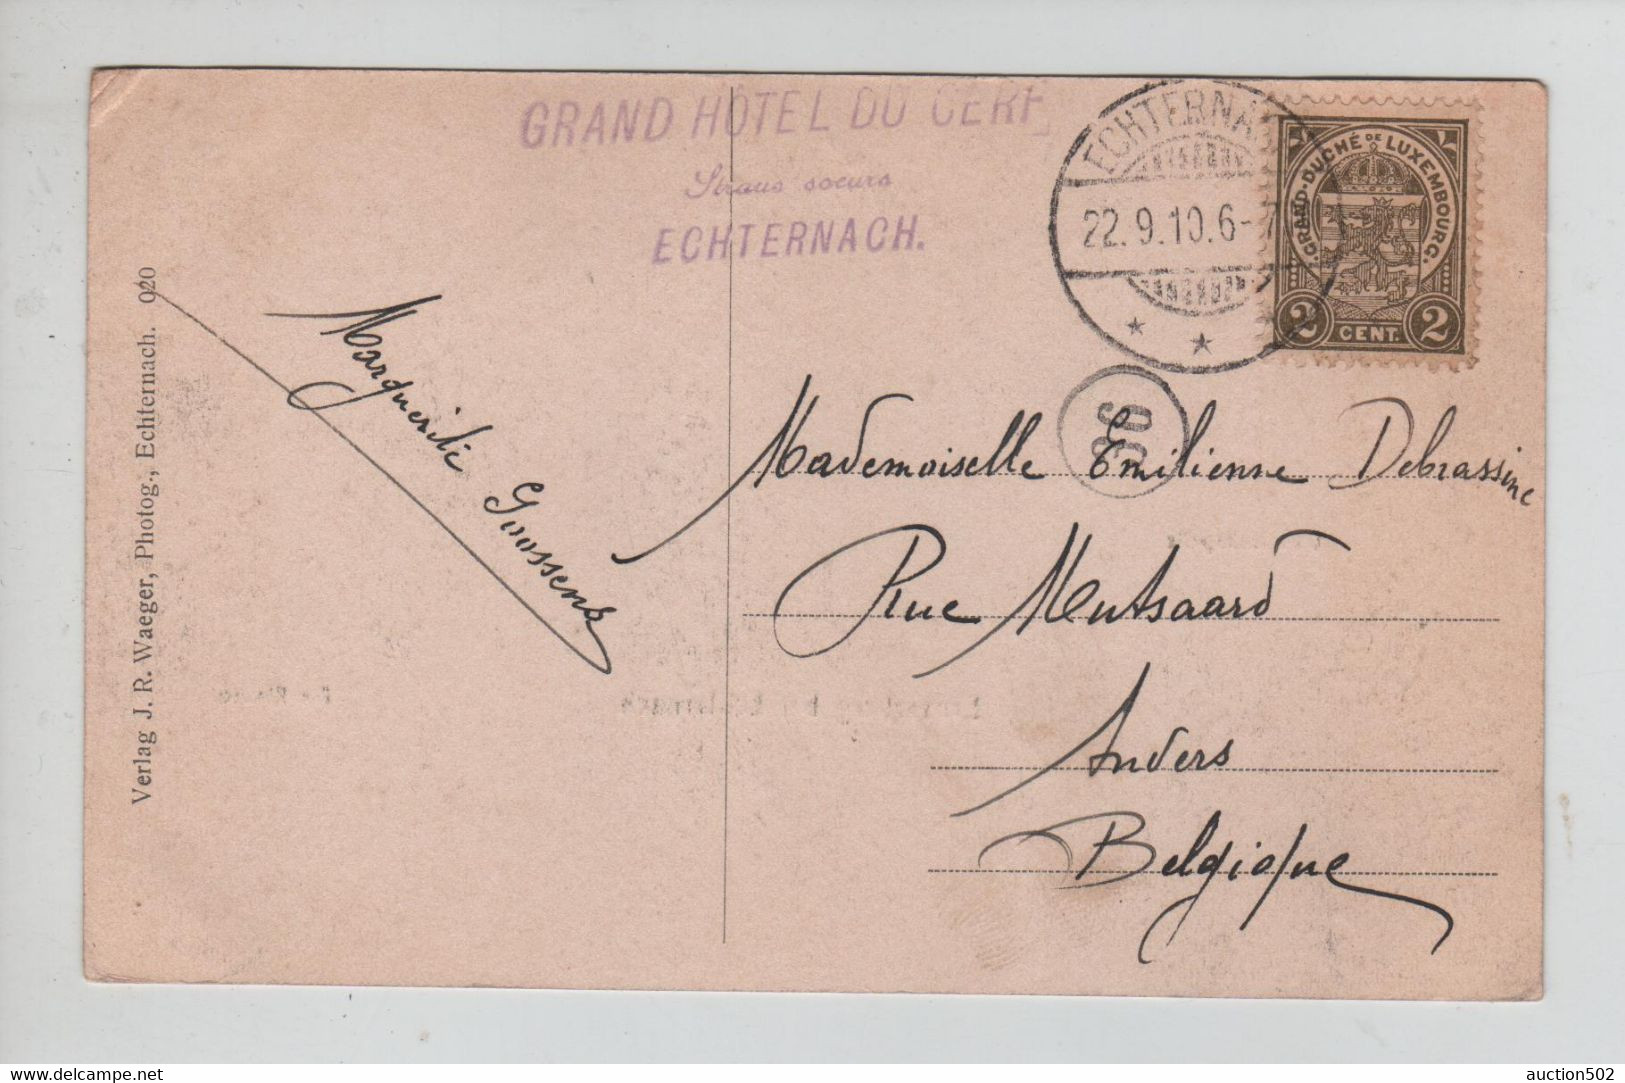 GRAND HOTEL DU CERF
Straus soeurs
ECHTERNACH.
ECHTERNA
22.9.10.6-7
GRAND-DUCHÉ DE LUXEMBOURG.
2 CENT. 2
36
Marguerite Goossens
Mademoiselle Emilienne Debrassine
Rue Mutsaard
Anvers
Belgique
Verlag J. R. Waeger, Photog., Echternach. 020
auction502